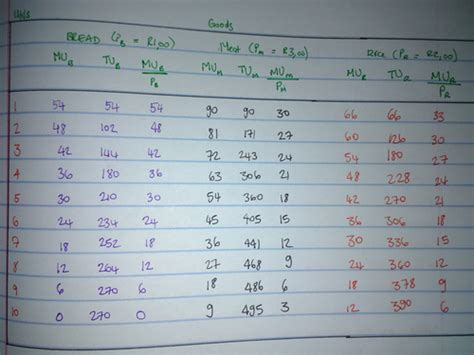 Goods
BREAD (PB = R1,00) Meat (PM = R3,00) Rice (PR = R2,00)
MUB TUB MUB/PB MUM TUM MUM/PM MUR TUR MUR/PR
1 54 54 54 90 90 30 66 66 33
2 48 102 48 81 171 27 60 126 30
3 42 144 42 72 243 24 54 180 27
4 36 180 36 63 306 21 48 228 24
5 30 210 30 54 360 18 42 270 21
6 24 234 24 45 405 15 36 306 18
7 18 252 18 36 441 12 30 336 15
8 12 264 12 27 468 9 24 360 12
9 6 270 6 18 486 6 18 378 9
10 0 270 0 9 495 3 12 390 6